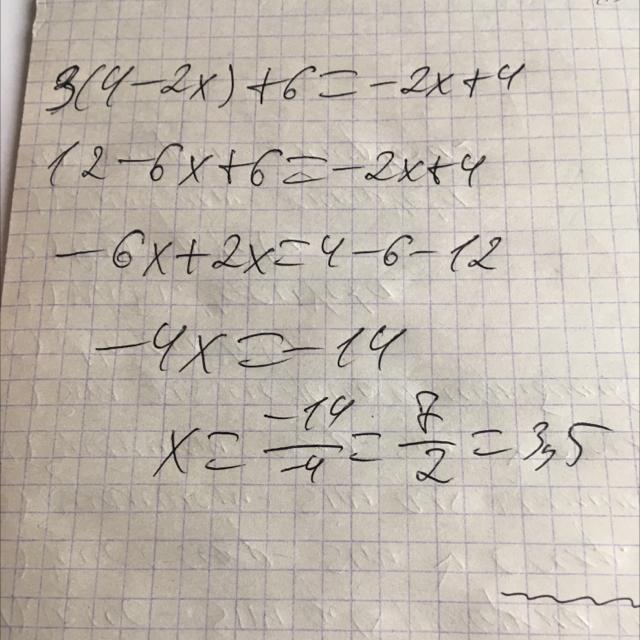 3(4-2x)+6=-2x+4
12-6x+6=-2x+4
-6x+2x=4-6-12
-4x=-14
x=\frac{-14}{-4}=\frac{7}{2}=3,5